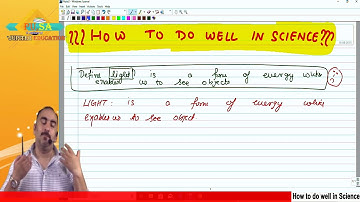 ??? HOW TO DO WELL IN SCIENCE???
Define light: is a form of energy which
enabled us to see objects
LIGHT: is a form of energy which
enables us to see object.
EDUCATION
How to do well in Science